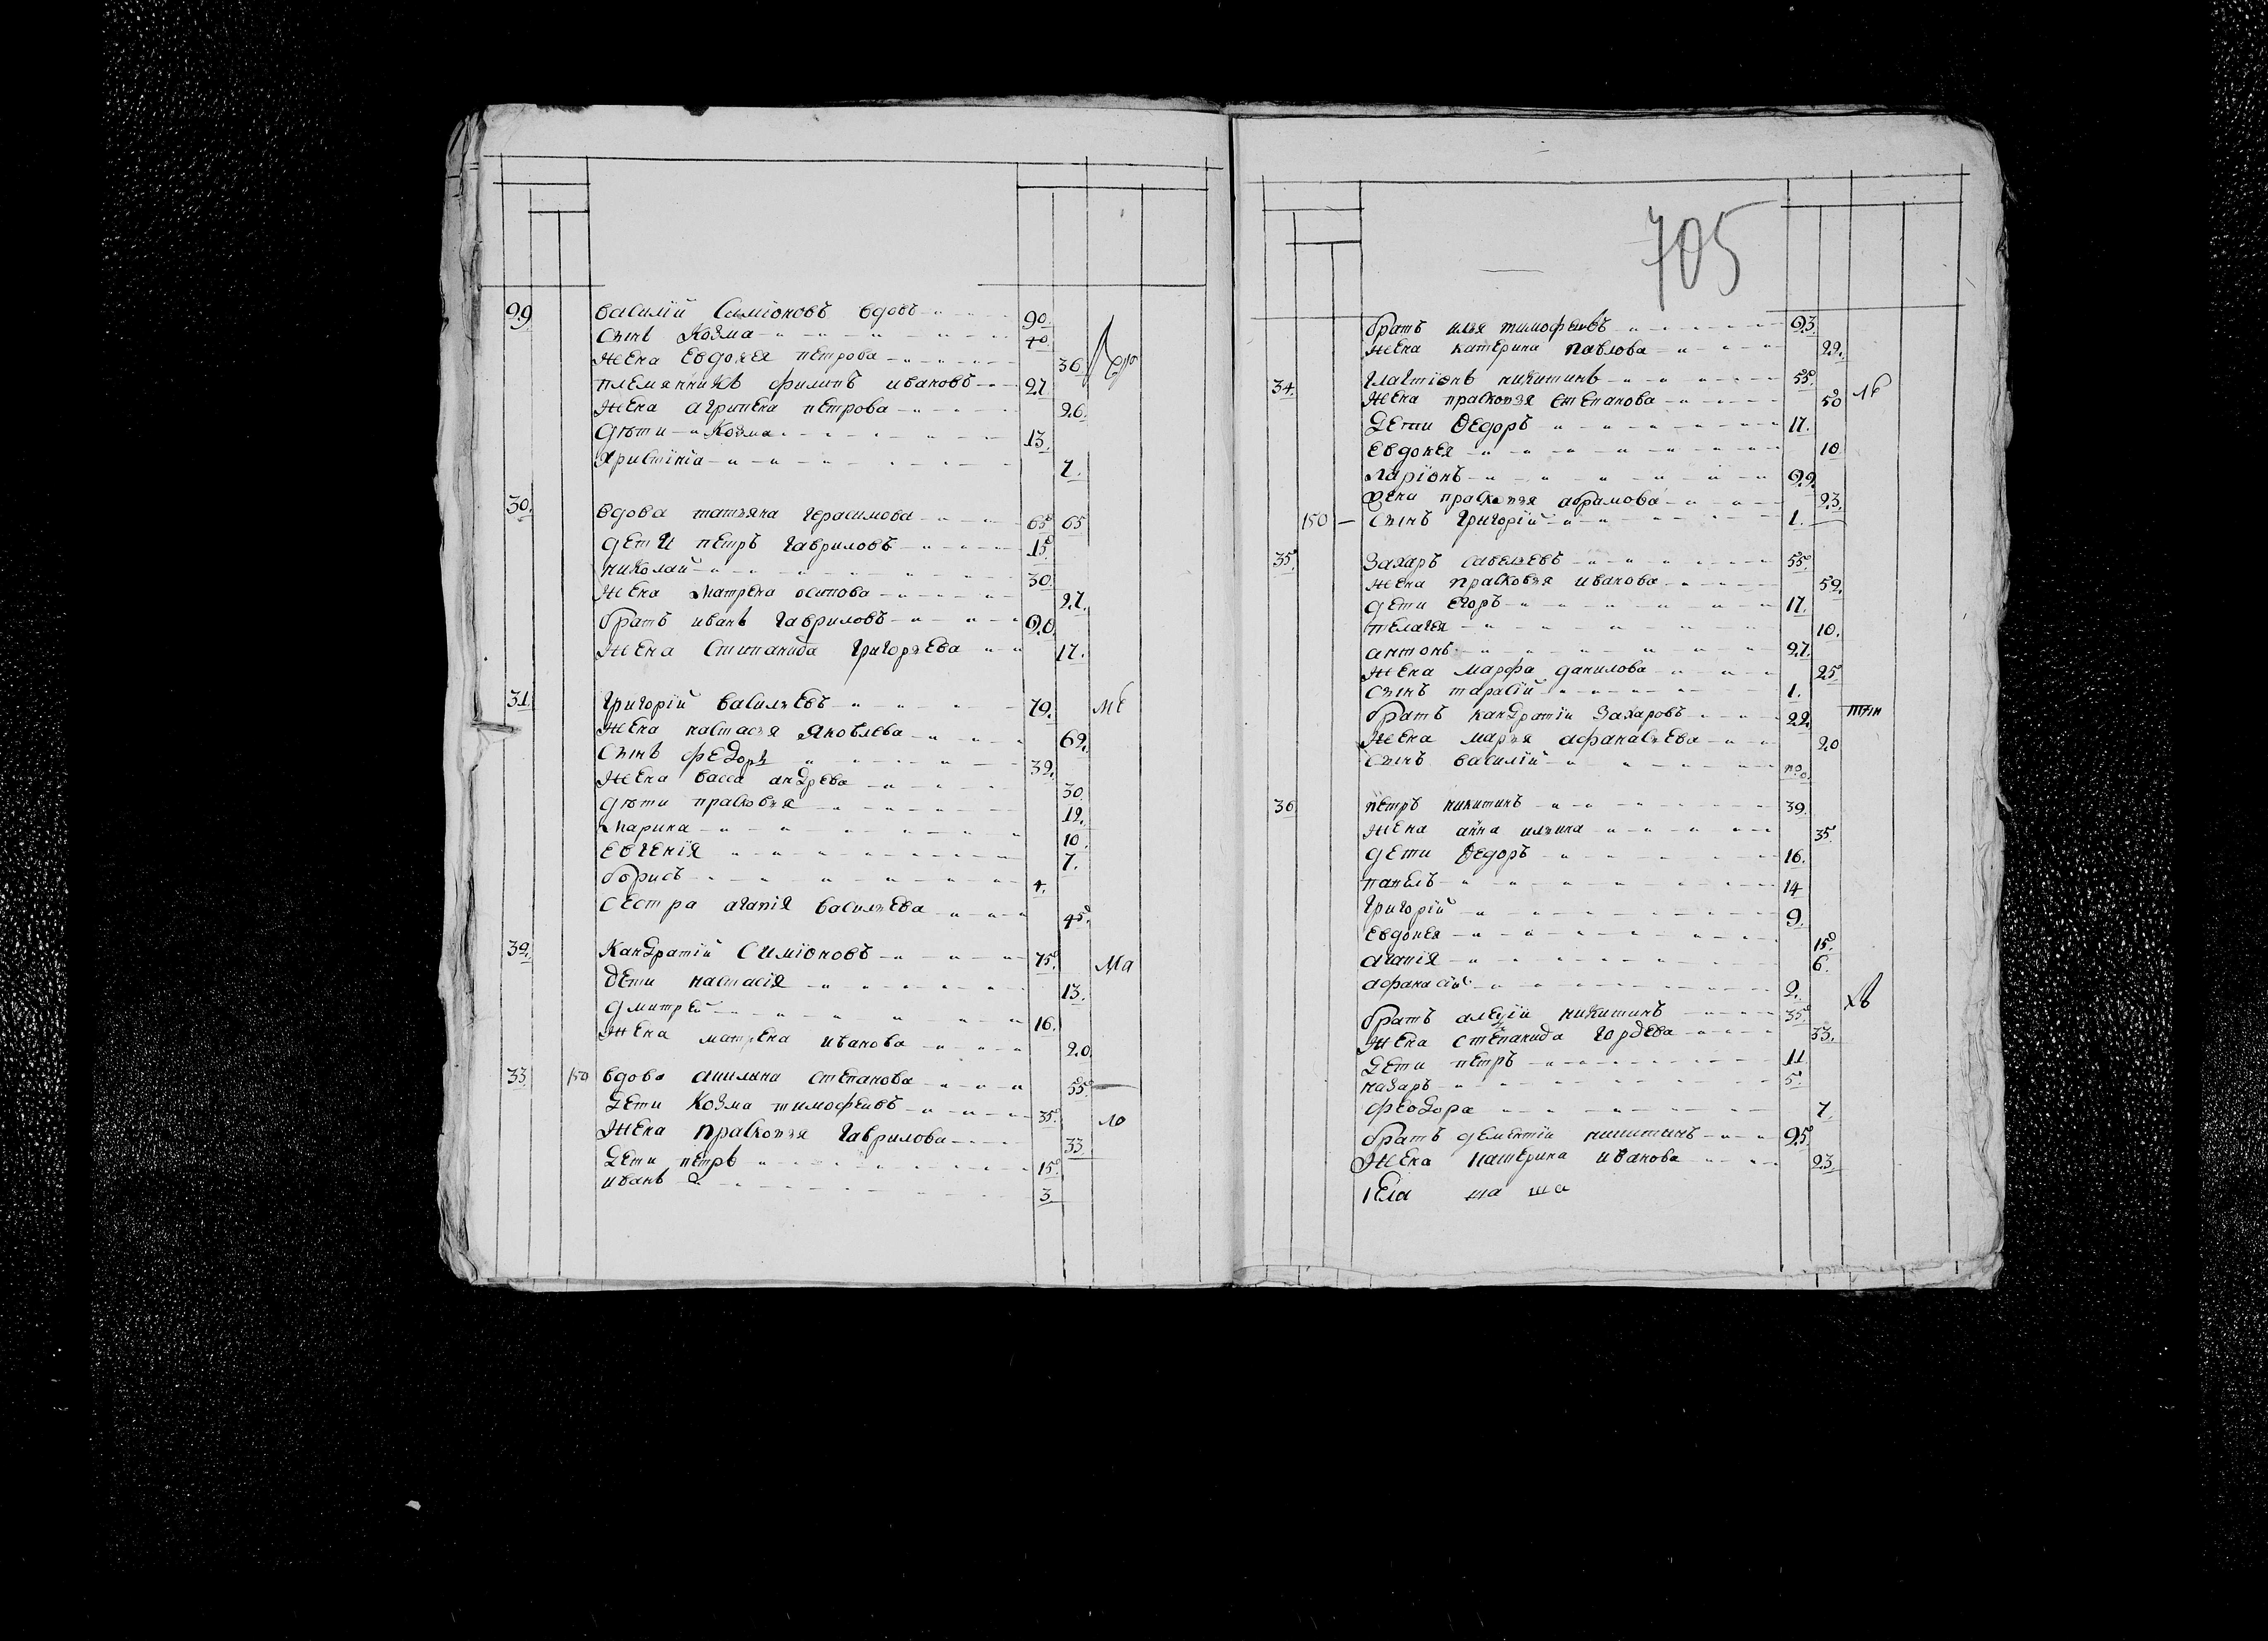 29 василій Симіоновъ вдовъ 90
Сынъ Козма 40
жена Евдокея петрова 36
племянникъ филипъ ивановъ 27
жена агрипена петрова 26
дѣти Козма 13
Христинїа 7
30 вдова татьяна герасимова 65 65
дети петръ гавриловъ 15
николай 30
жена матрена осипова 27
братъ иванъ гавриловъ 20
жена Стипанида григорьева 17
31 григорїй васильевъ 79 МЕ
жена настасья яковлева 62
Сынъ федоръ 39
жена васса андрева 30
дѣти прасковья 12
марина 10
евгенїя 7
борисъ 4
сестра агапїя васильева 45
32 Кандратїй Симїоновъ 75 Ма
дети настасїя 13
дмитрей 16
жена матрена иванова 20
33 150 вдова акилина степанова 55
дети Козма тимофеивъ 35
жена прасковья гаврилова 33
дети петръ 15
иванъ 3
705
братъ илья тимофеивъ 23
жена катерина павлова 22
34 галактїонъ никитинъ 55
жена прасковья степанова 50
дети Ѳедоръ 17
евдокея 10
ларїонъ 22
жена прасковья абрамова 23
150 Сынъ григорїй 1
35 Захаръ савельевъ 55
жена прасковья иванова 52
дети егоръ 17
пелагея 10
антонъ 27
жена марфа данилова 25
Сынъ тарасїй 1
братъ кандратїй Захаровъ 22
жена марья афанасьева 20
Сынъ василїй по
36 петръ никитинъ 39
жена анна ильина 35
дети Ѳедоръ 16
павелъ 14
григорїй 9
евдокея 15
агапїя 6
афанасїй 2
братъ алецїй никитинъ 35
жена степанида гордева 33
дети петръ 11
назаръ 5
феодора 7
братъ дементїй никитинъ 25
жена катерина иванова 23